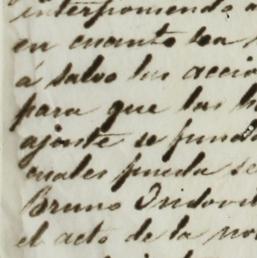 interponiendo a
en cuanto sea
á salvo las accio
para que las h
ajente se funda
cuales pueda se
Bruno Ysidor
el acto de la no